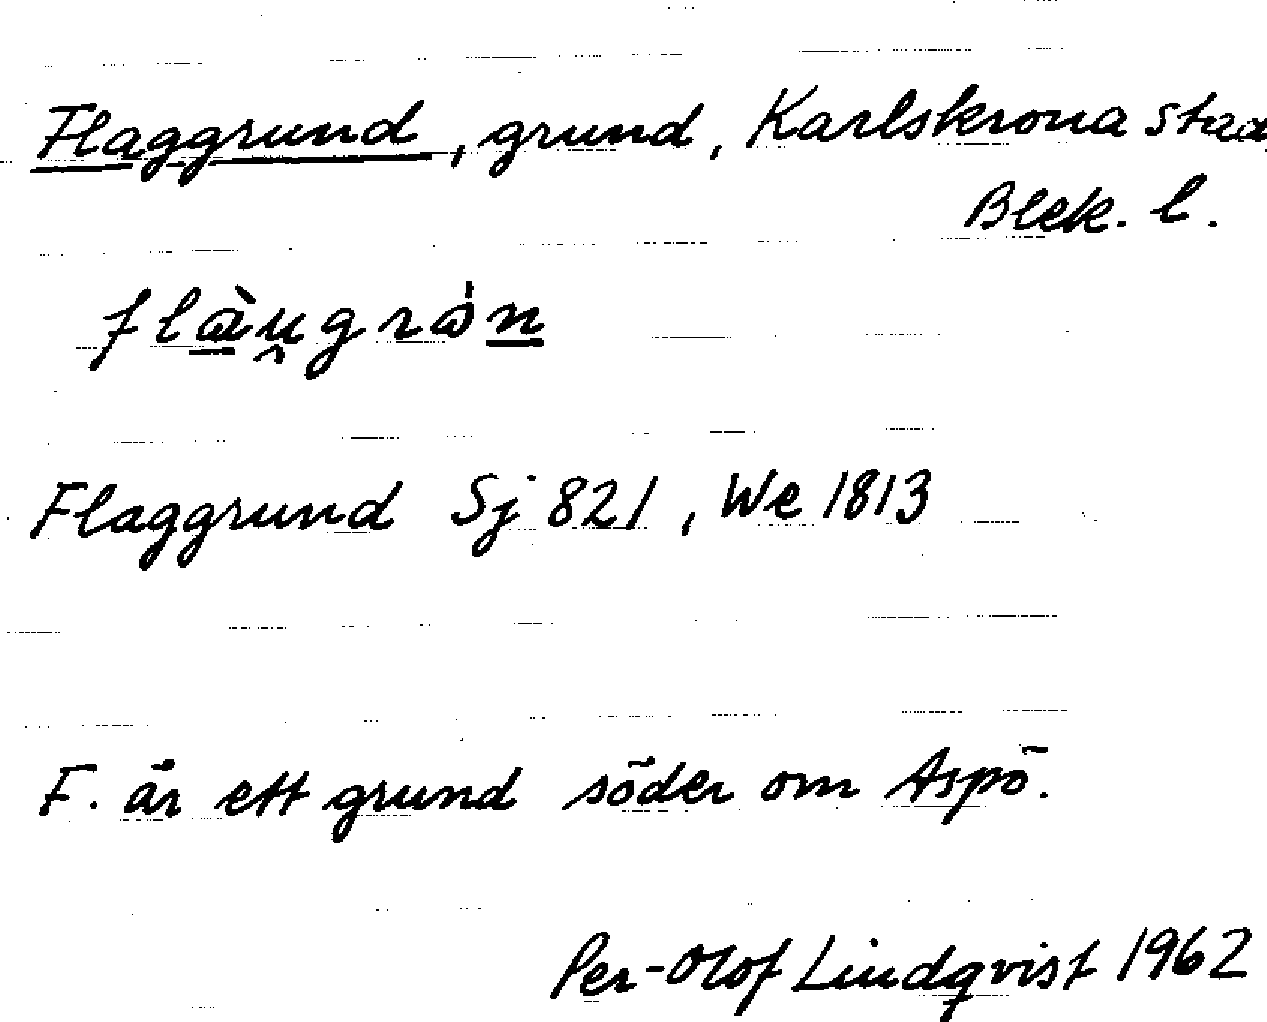 Flaggrund, grund, Karlskrona stad
Blek. l.
Flaggrund Sj 821, We 1813
F. är ett grund söder om Aspö.
Per-Olof Lindqvist 1962